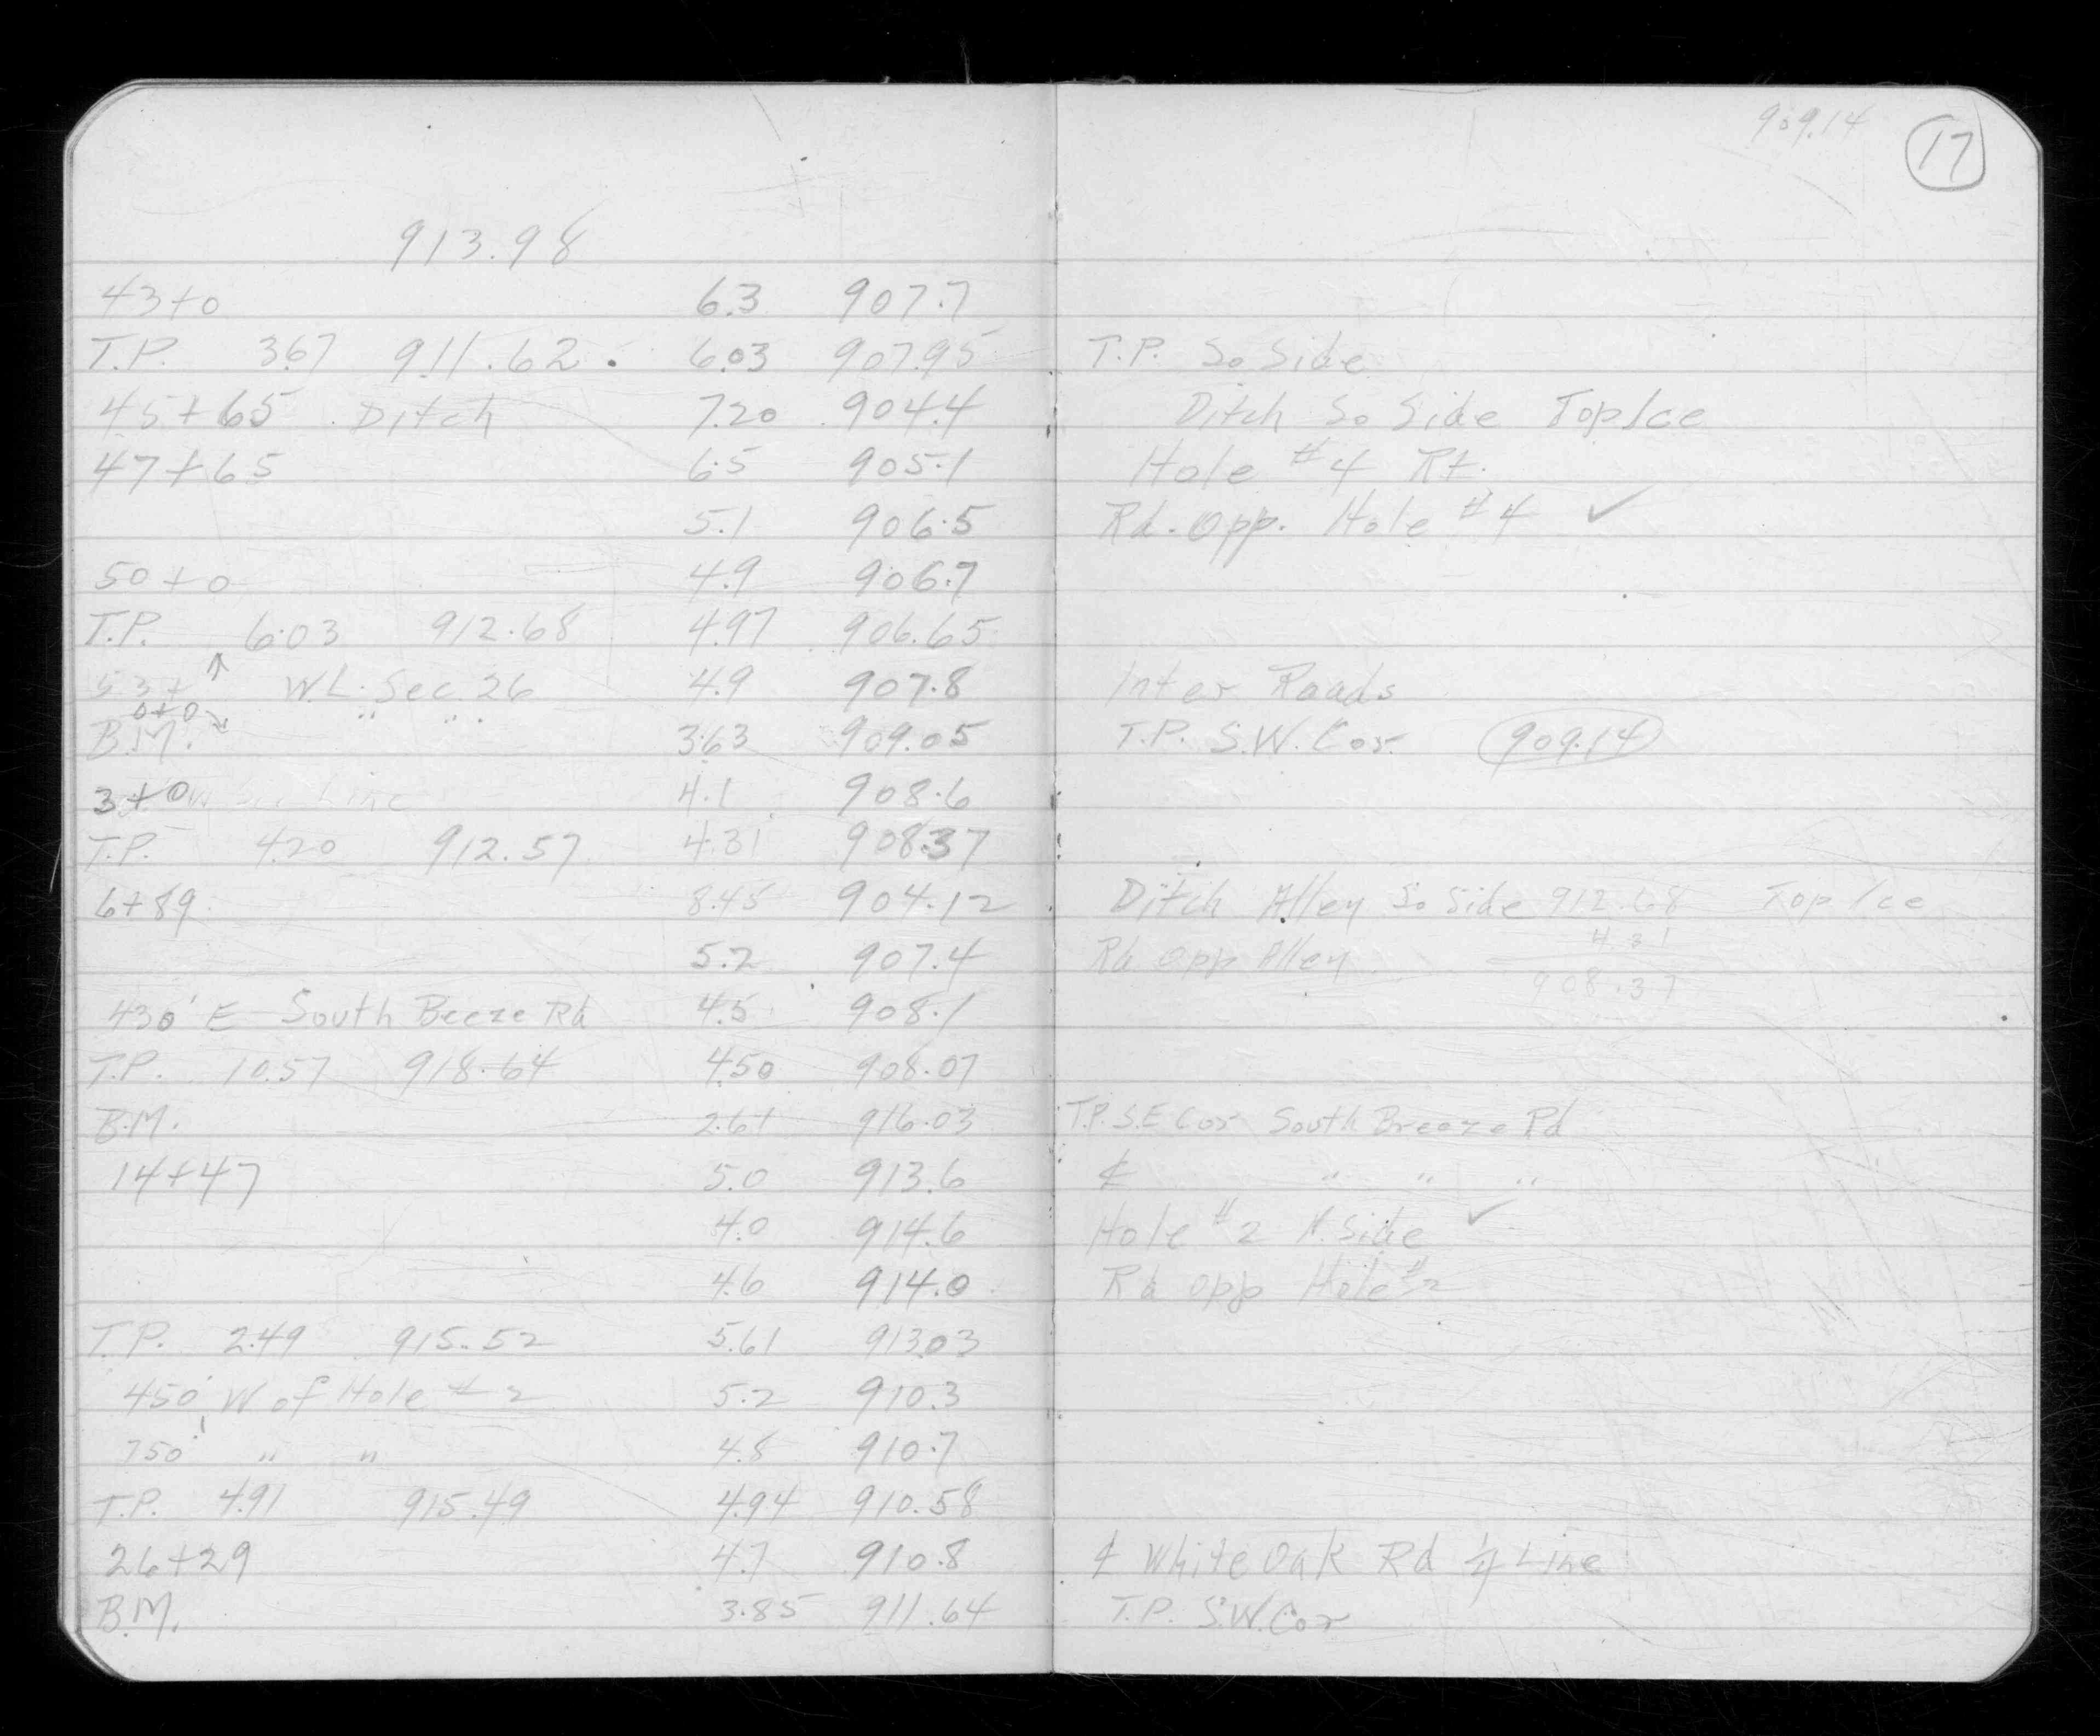 909.14
17
913.98
43+0 6.3 907.7
T.P. 3.67 911.62 6.03 907.95 T.P. So Side
45+65 Ditch 7.20 904.4 Ditch So Side Top Ice
47+65 6.5 905.1 Hole #4 Rt.
5.1 906.5 Rd. Opp. Hole #4 ✓
50+0 4.9 906.7
T.P. 6.03 912.68 4.97 906.65
53+ W.L. Sec. 26 4.9 907.8 Inter Roads
0+0 " "
B.M. 3.63 909.05 T.P. S.W. Cor. 909.14
3+0 Line 4.1 908.6
T.P. 4.20 912.57 4.31 908.37
6+89 8.45 904.12 Ditch Alley So Side 912.68 Top Ice
4.31
5.2 907.4 Rd Opp Alley
908.37
430' E South Breeze Rd 4.5 908.1
T.P. 10.57 918.64 4.50 908.07
B.M. 2.61 916.03 T.P. S.E Cor South Breeze Rd
14+47 5.0 913.6 ℄ " " "
4.0 914.6 Hole #2 N. Side ✓
4.6 914.0 Rd opp Hole #2
T.P. 2.49 915.52 5.61 913.03
450' W of Hole #2 5.2 910.3
750' " " 4.8 910.7
T.P. 4.91 915.49 4.94 910.58
26+29 4.7 910.8 ℄ White Oak Rd ¼ Line
B.M. 3.85 911.64 T.P. S.W. Cor